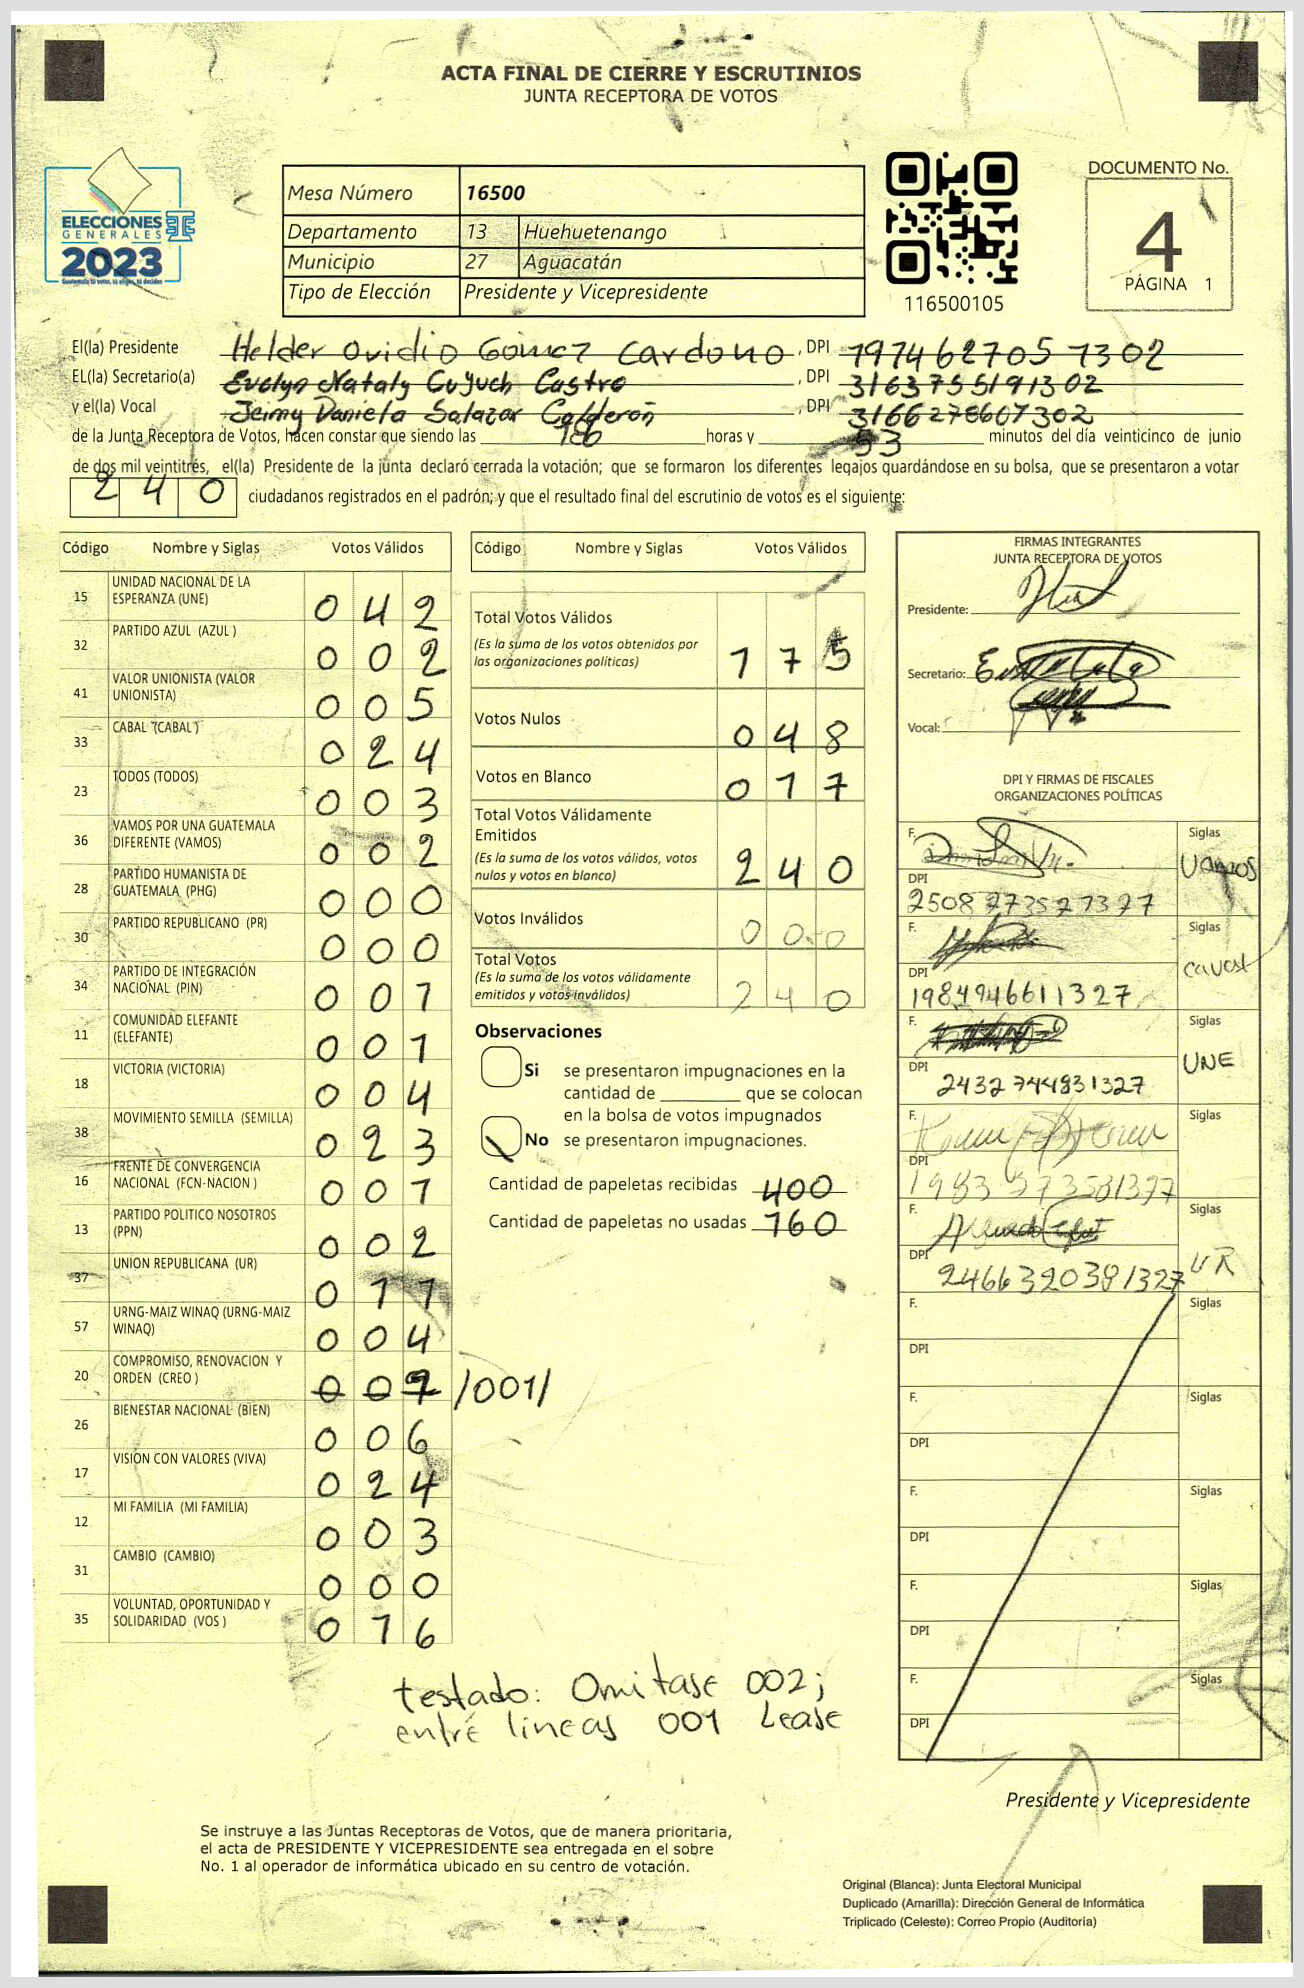 ACTA FINAL DE CIERRE Y ESCRUTINIOS
JUNTA RECEPTORA DE VOTOS
ELECCIONES
GENERALES
2023
Guatemala tu votas, tú eliges, tú decides
Mesa Número 16500
Departamento 13 Huehuetenango
Municipio 27 Aguacatán
Tipo de Elección Presidente y Vicepresidente
116500105
DOCUMENTO No.
4
PÁGINA 1
El(la) Presidente Helder Ovidio Gómez Cardono, DPI 1974627051302
EL(la) Secretario(a) Evelyn Nataly Cuyuch Castro, DPI 3163755191302
y el(la) Vocal Jeimy Daniela Salazar Calderón, DPI 3166278601302
de la Junta Receptora de Votos, hacen constar que siendo las 18 horas y 53 minutos del día veinticinco de junio
de dos mil veintitrés, el(la) Presidente de la junta declaró cerrada la votación; que se formaron los diferentes legajos guardándose en su bolsa, que se presentaron a votar
240 ciudadanos registrados en el padrón; y que el resultado final del escrutinio de votos es el siguiente:
Código Nombre y Siglas Votos Válidos
15 UNIDAD NACIONAL DE LA ESPERANZA (UNE) 042
32 PARTIDO AZUL (AZUL ) 002
41 VALOR UNIONISTA (VALOR UNIONISTA) 005
33 CABAL (CABAL ) 024
23 TODOS (TODOS) 003
36 VAMOS POR UNA GUATEMALA DIFERENTE (VAMOS) 002
28 PARTIDO HUMANISTA DE GUATEMALA (PHG) 000
30 PARTIDO REPUBLICANO (PR) 000
34 PARTIDO DE INTEGRACIÓN NACIONAL (PIN) 001
11 COMUNIDAD ELEFANTE (ELEFANTE) 001
18 VICTORIA (VICTORIA) 004
38 MOVIMIENTO SEMILLA (SEMILLA) 023
16 FRENTE DE CONVERGENCIA NACIONAL (FCN-NACION ) 001
13 PARTIDO POLITICO NOSOTROS (PPN) 002
37 UNION REPUBLICANA (UR) 011
57 URNG-MAIZ WINAQ (URNG-MAIZ WINAQ) 004
20 COMPROMISO, RENOVACION Y ORDEN (CREO ) /001/
26 BIENESTAR NACIONAL (BIEN) 006
17 VISION CON VALORES (VIVA) 024
12 MI FAMILIA (MI FAMILIA) 003
31 CAMBIO (CAMBIO) 000
35 VOLUNTAD, OPORTUNIDAD Y SOLIDARIDAD (VOS ) 016
testado: Omitase 002;
entre lineas 001 Lease
Código Nombre y Siglas Votos Válidos
Total Votos Válidos 175
(Es la suma de los votos obtenidos por
las organizaciones políticas)
Votos Nulos 048
Votos en Blanco 017
Total Votos Válidamente
Emitidos 240
(Es la suma de los votos válidos, votos
nulos y votos en blanco)
Votos Inválidos 000
Total Votos 240
(Es la suma de los votos válidamente
emitidos y votos inválidos)
Observaciones
Si se presentaron impugnaciones en la
cantidad de ________ que se colocan
en la bolsa de votos impugnados
No se presentaron impugnaciones.
Cantidad de papeletas recibidas 400
Cantidad de papeletas no usadas 160
FIRMAS INTEGRANTES
JUNTA RECEPTORA DE VOTOS
Presidente:
Secretario:
Vocal:
DPI Y FIRMAS DE FISCALES
ORGANIZACIONES POLÍTICAS
F. Siglas
Vamos
DPI
2508273521327
F. Siglas
DPI
1984946611327
F. Siglas
UNE
DPI
2432744831327
F. Siglas
DPI
1983373581327
F. Siglas
UR
DPI
2466320381327
F. Siglas
DPI
F. Siglas
DPI
F. Siglas
DPI
F. Siglas
DPI
F. Siglas
DPI
Presidente y Vicepresidente
Se instruye a las Juntas Receptoras de Votos, que de manera prioritaria,
el acta de PRESIDENTE Y VICEPRESIDENTE sea entregada en el sobre
No. 1 al operador de informática ubicado en su centro de votación.
Original (Blanca): Junta Electoral Municipal
Duplicado (Amarilla): Dirección General de Informática
Triplicado (Celeste): Correo Propio (Auditoría)